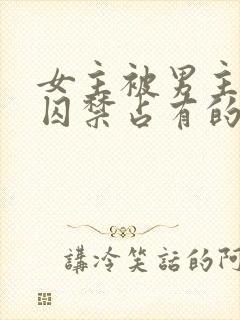 女主被男主
囚禁占有的
講冷笑話的阿